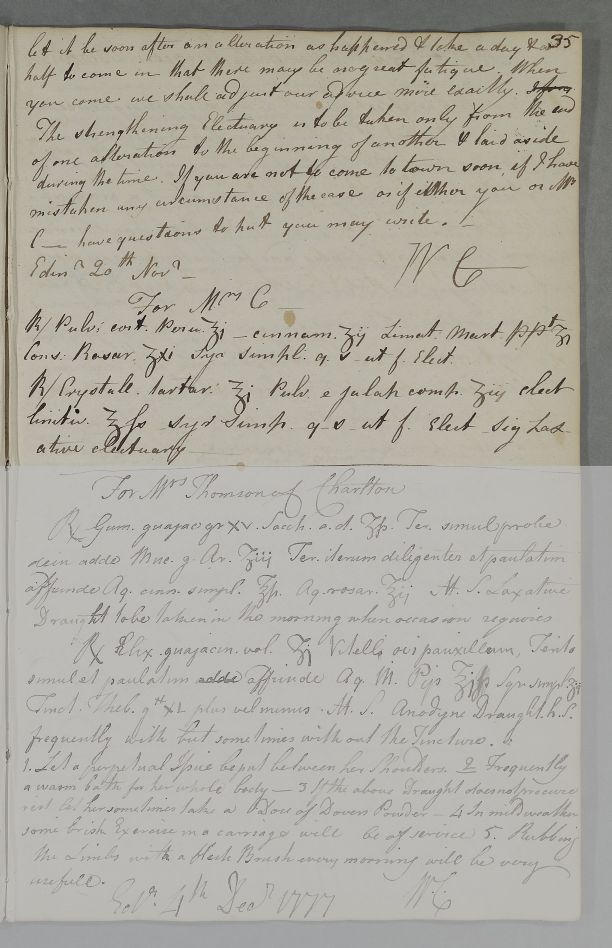 35
let it be soon after an alteration as happened & take a day & a
half to come in that there may be no great fatigue. When
you come we shall adjust our advice more exactly.
The strengthening Electuary is to be taken only from the end
of one alteration to the beginning of another & laid aside
during the time. If you are not to come to town soon, if I have
mistaken any circumstance of the case or if either you or Mrs
C— have questions to put you may write. —
Edinr 20th Novr —
W C—
For Mrs C—
R/ Pulv: cort. Peru. ʒj — cinnam. ʒij Limat. Mart. ppt ʒj
Cons: Rosar. ʒxi Syr simpl: q. s. ut f. Elect.
R/ Crystall. tartar. ʒj Pulv. e jalap comp. ʒiij elect
linitiv. ʒſs syr Simp. q-s- ut f. Elect Sig Lax
ative electuary
For Mrs Thomson of Charlton
R Gum. guajac: gr xv. Sacch. a.d. ʒſs. Ter. simul probe
dein adde Muc. g. Ar. ʒiij Ter. iterum diligenter et paulatim
affunde Aq. cinn. simpl. ʒſs. Aq. rosar. ʒij M. S. Laxative
Draught to be taken in the morning when occasion requires
R Elix. guajacin. vol. ʒj Vitelli ovi pauxillum, Terito
simul et paulatim adde affunde Aq. M. Pip ʒiſs Syr. simp. ʒij
Tinct. Theb. gtt XL plus vel minus. M. S. Anodyne Draught. h. S.
frequently with but sometimes without the Tincture.
1. Let a perpetual Issue be put between her Shoulders. 2 Frequently
a warm bath for her whole body — 3 If the above Draught does not procure
rest let her sometimes take a Dose of Dovers Powder — 4 In mild weather
some brisk Exercise in a carriage will be of service 5. Rubbing
the Limbs with a flesh Brush every morning will be very
usefull.
Edr. 4th Decr 1777
W C